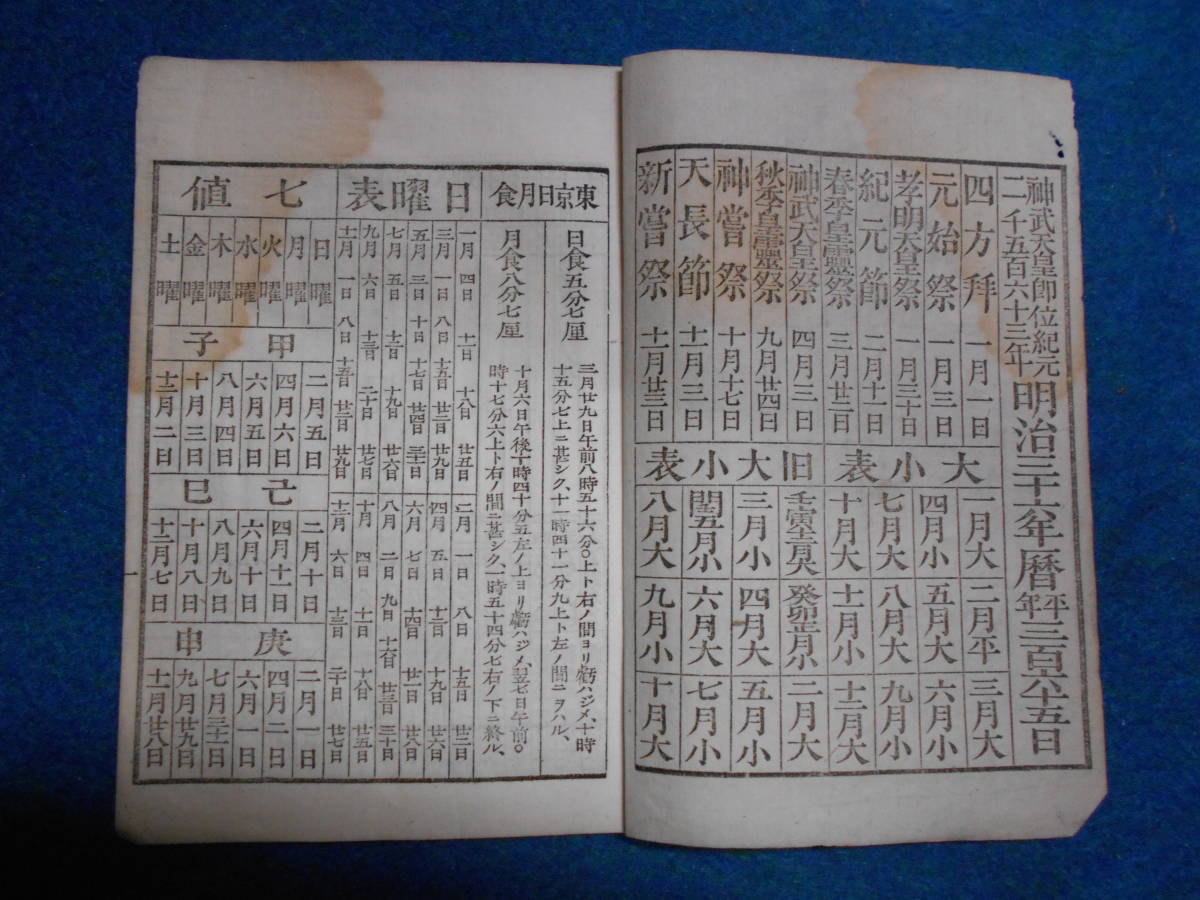 神武天皇即位紀元
二千五百六十三年
明治三十六年暦 平年三百六十五日
四方拜 一月一日
元始祭 一月三日
孝明天皇祭 一月三十日
紀元節 二月十一日
春季皇靈祭 三月廿二日
神武天皇祭 四月三日
秋季皇靈祭 九月廿四日
神嘗祭 十月十七日
天長節 十一月三日
新嘗祭 十一月廿三日
大小表
一月大 二月平 三月大
四月小 五月大 六月小
七月大 八月大 九月小
十月大 十一月小 十二月大
旧大小表
壬寅十二月大 癸卯正月小 二月大
三月小 四月大 五月小
閏五月小 六月大 七月小
八月大 九月小 十月大
東京日月食
日食五分七厘
三月廿九日午前八時五十六分〇上ト右ノ間ヨリ虧ハジメ、十時
十五分七上ニ甚シク、十一時四十一分九上ト左ノ間ニヲハル、
月食八分七厘
十月六日午後十時四十分五左ノ上ヨリ虧ハジメ、翌七日午前〇
時十七分六上ト右ノ間ニ甚シク、一時五十四分七右ノ下ニ終ル、
日曜表
一月 四日 十一日 十八日 廿五日 二月 一日 八日 十五日 廿二日
三月 一日 八日 十五日 廿二日 廿九日 四月 五日 十二日 十九日 廿六日
五月 三日 十日 十七日 廿四日 三十一日 六月 七日 十四日 廿一日 廿八日
七月 五日 十二日 十九日 廿六日 八月 二日 九日 十六日 廿三日 三十日
九月 六日 十三日 二十日 廿七日 十月 四日 十一日 十八日 廿五日
十一月 一日 八日 十五日 廿二日 廿九日 十二月 六日 十三日 二十日 廿七日
七値
日曜
月曜
火曜
水曜
木曜
金曜
土曜
甲子
二月五日
四月六日
六月五日
八月四日
十月三日
十二月二日
己巳
二月十日
四月十一日
六月十日
八月九日
十月八日
十二月七日
庚申
二月一日
四月二日
六月一日
七月三十一日
九月廿九日
十一月廿八日
一